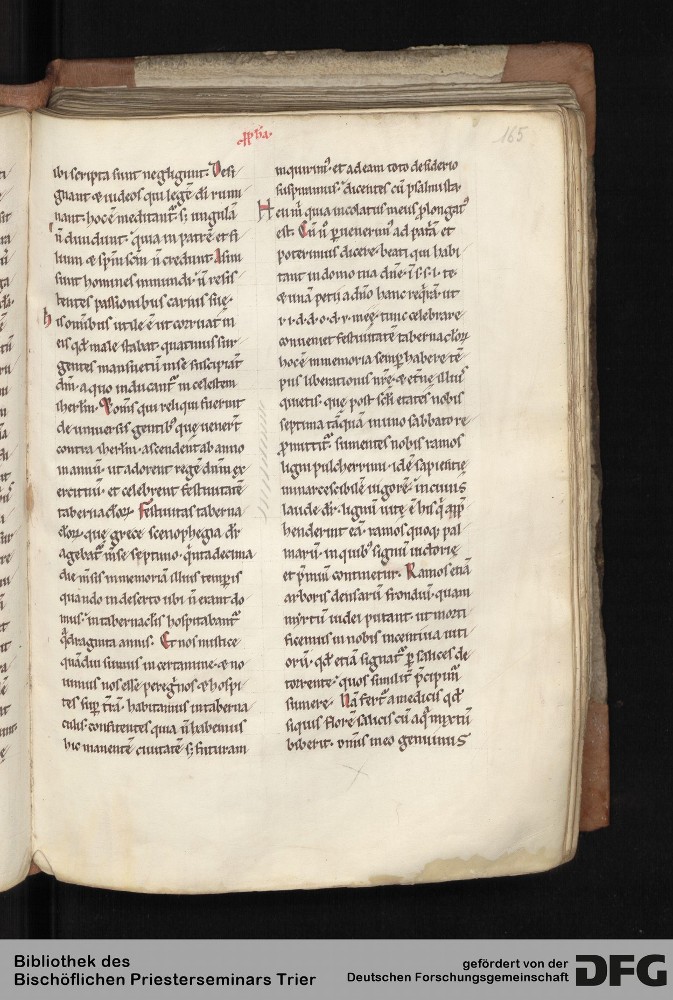 165
ibi scripta sunt negligunt. Desi
gnant & iudeos qui legē dī rumi
nant. hoc ē meditant᷑. sꝫ ungulā
n̄ diuidunt. quia in patrē et fi
lium & sp̄m sc̄m n̄ credunt. Asini
sunt homines inmundi. n̄ resis
tentes passionibus carnis suę.
his omībus utile ē ut corruat in
eis qđ male stabat. quatinus sur
gentes mansuetū in se suscipiāt
dn̄m. a quo inducant᷑ in celestem
ihrl̄m. Et om̄s qui reliqui fuerint
de uniuersis gentib; quę uener̄t
contra ihrl̄m. ascendent ab anno
in annū. ut adorent regē dn̄m ex
ercituū. et celebrent festiuitatē
tabernaclo℞. Festiuitas taberna
clo℞. quę grece scenophegia dr̄
agebat᷑ mēse septimo. q̇ntadecima
die m̄sis in memoriā illius temporis
quando in deserto ubi n̄ erant do
mus. in tabernac̄lis hospitabant᷑
q̇draginta annis. Et nos mistice
quādiu sumus in certamine. & no
uimus nos esse peregˈnos & hospi
tes suꝑ tr̄ā. habitamus in taberna
culis. confitentes quia n̄ habemus
hic manentē ciuitatē. sꝫ futuram
inquirim᷒. et ad eam toto desiderio
suspiramus. dicentes cū psalmista.
Heu m̄ quia incolatus meus ꝓlongat᷒
est. Cū ū ꝑuenerim᷒ ad patˈā et
poterimus dicere. beati qui habi
tant in domo tua dn̄e. in. s. s. l. te.
& unā petii a dn̄o hanc reqˈrā. ut
i. i. d. d. o. d. v. meę. tunc celebrare
conueniet festiuitatē tabernaclo℞
hoc ē in memoria semꝑ habere tē
pus liberationis nr̄ę. & etn̄ę illius
quietis. quę post sex etates nobis
septima tāquā in uno sabbato re
ꝓmittit᷑. sumentes nobis ramos
ligni pulcherrimi. id ē sapientię
inmarcescibilē uigorē. in cuius
laude dr̄. lignū uitę ē his qˈ app̄
henderint eā. ramos quoqꝫ pal
marū. in quib; signū uictorię
et p̄miū continetur. Ramos etiā
arboris densarū frondiū. quam
mýrtū iudei putant. ut morti
ficemus in nobis incentiua uiti
orū. qđ etiā signat᷑ ꝑ salices de
torrente. quos similit̄ p̄cipim᷑
sumere. Nā fert᷑ a medicis qđ
siquis florē salicis cū aqˈ mixtum
biberit. omīs in eo genuinus
Bibliothek des
Bischöflichen Priesterseminars Trier
gefördert von der
Deutschen Forschungsgemeinschaft
DFG